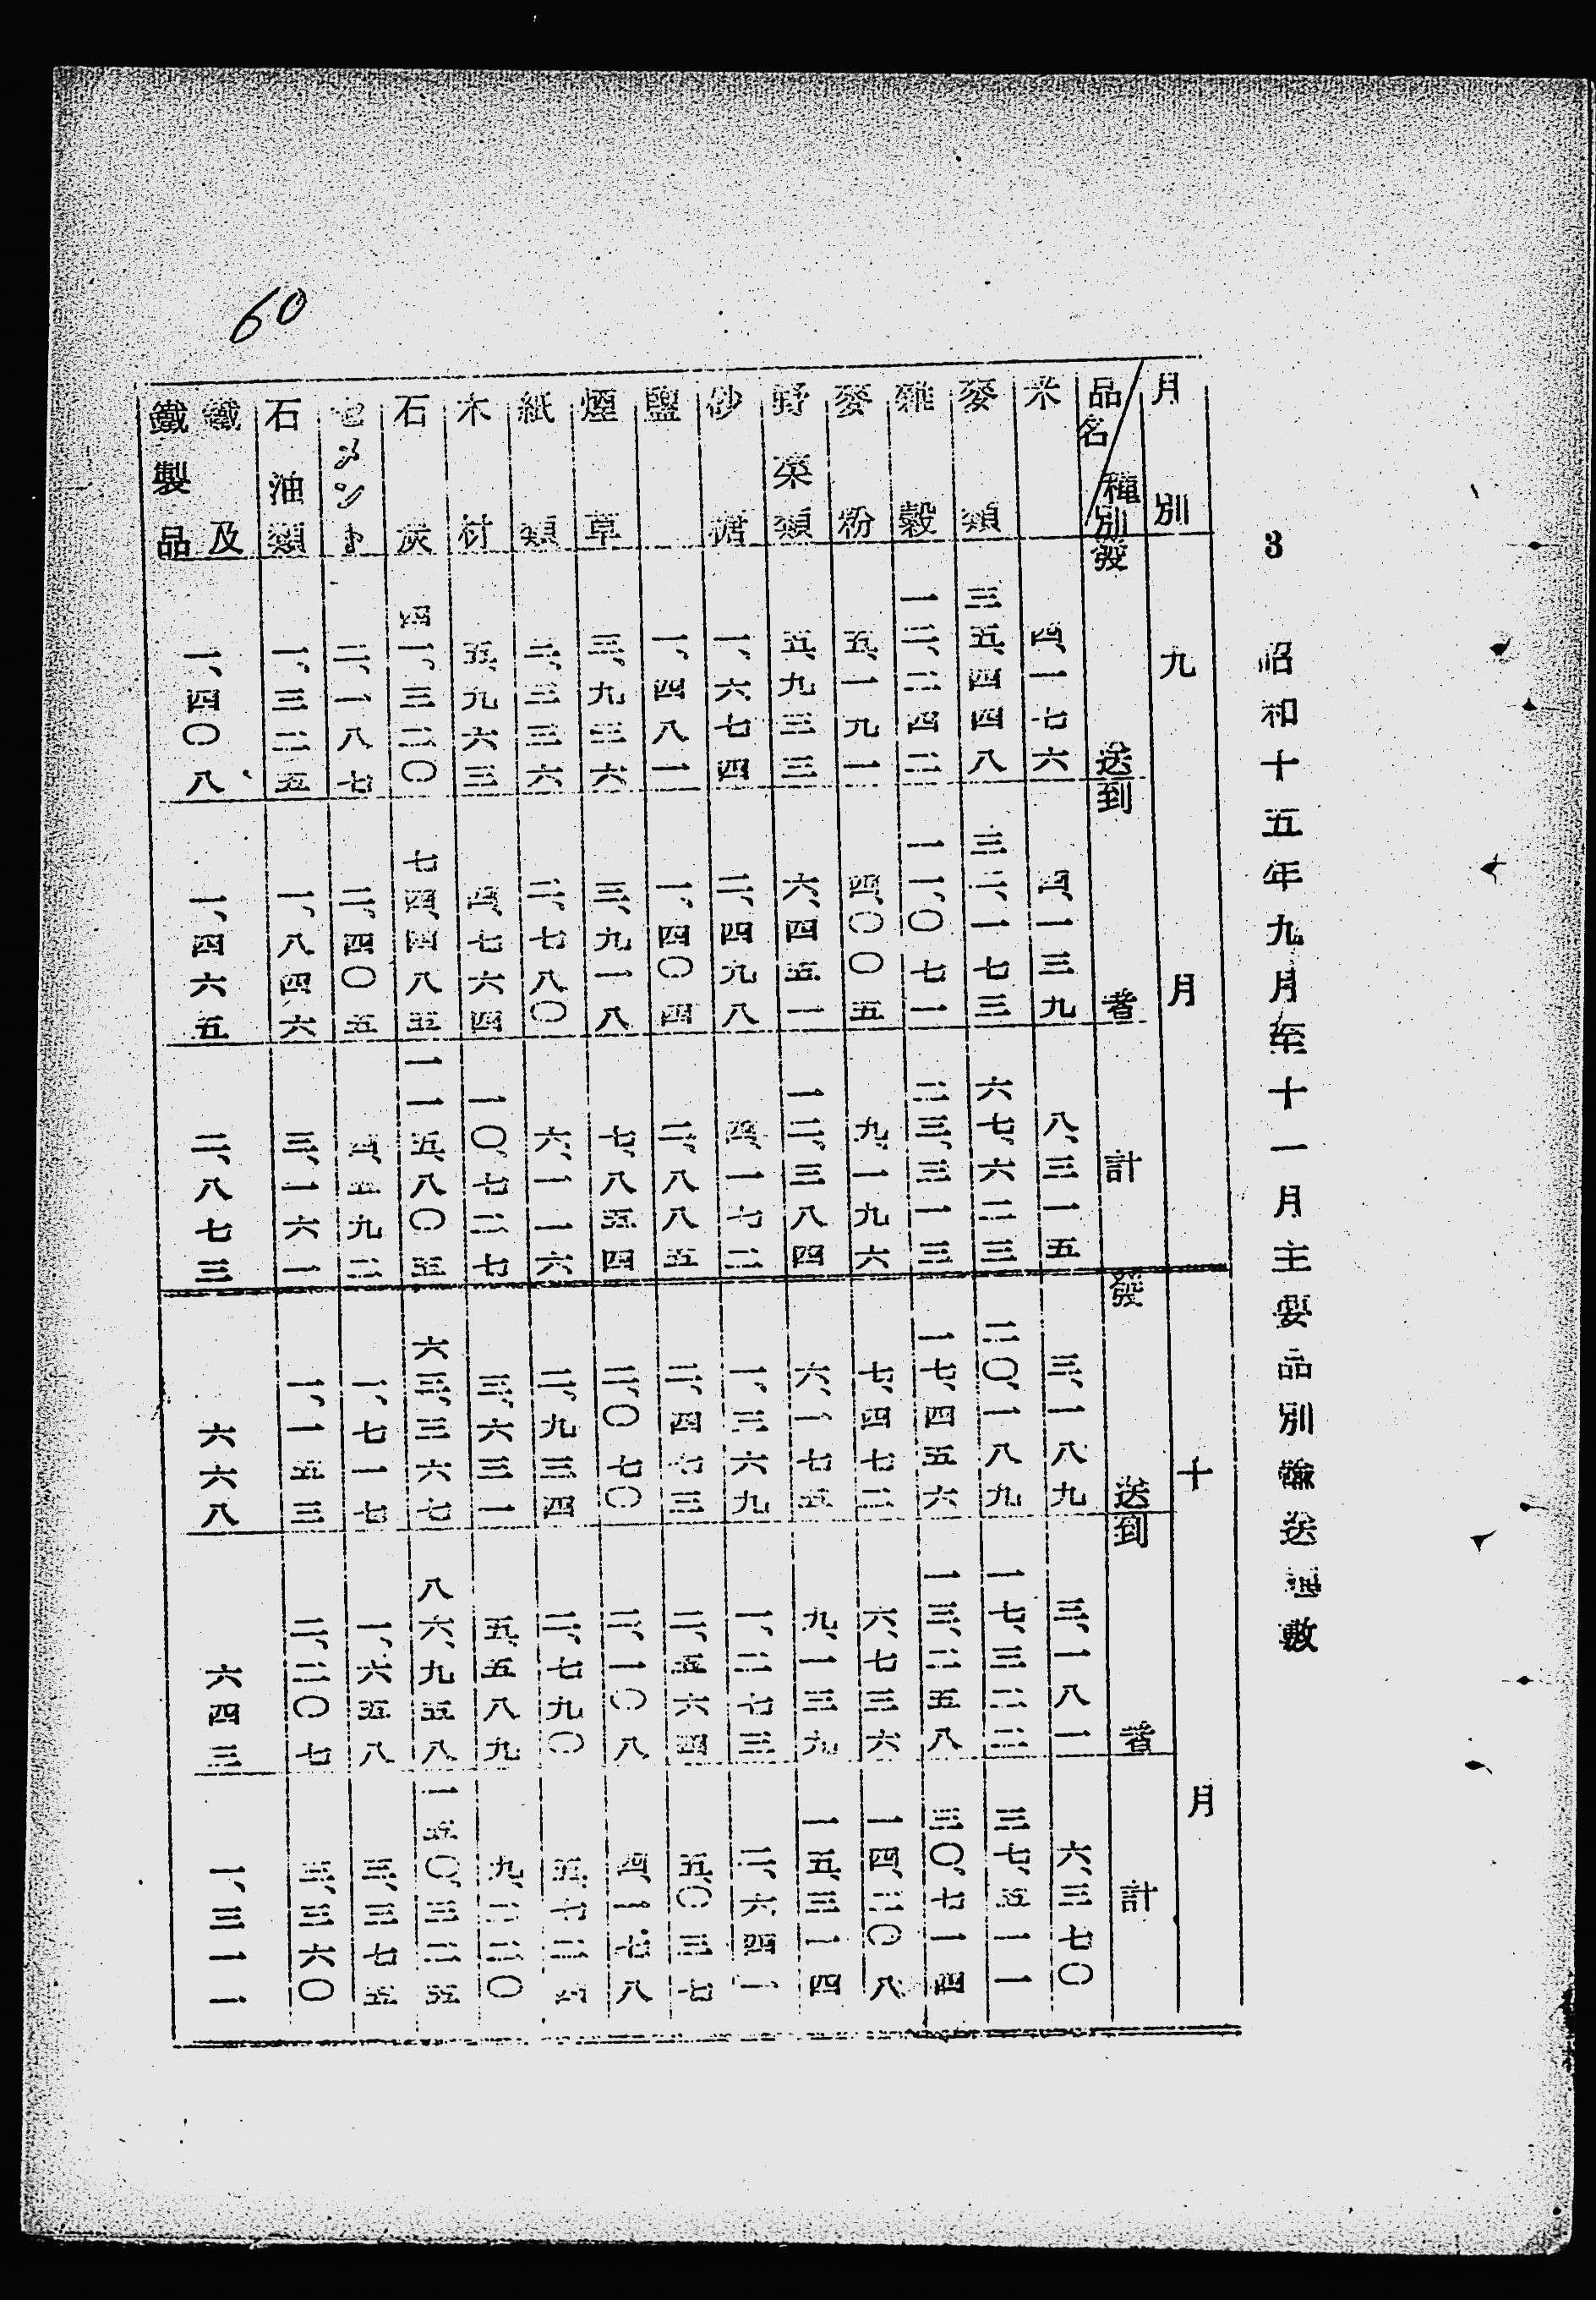 3 昭和十五年九月至十一月主要品別輸送數
月別 九月 十月
品名 種別 發送 到著 計 發送 到著 計
米 四、一七六 四、一三九 八、三一五 三、一八九 三、一八一 六、三七〇
麥類 三五、四四八 三二、一七三 六七、六二三 二〇、一八九 一七、三二二 三七、五一一
雜穀 一二、二四二 一一、〇七一 二三、三一三 一七、四五六 一三、二五八 三〇、七一四
麥粉 五、一九一 四、〇〇五 九、一九六 七、四七二 六、七三六 一四、二〇八
野菜類 五、九三三 六、四五一 一二、三八四 六、一七五 九、一三九 一五、三一四
砂糖 一、六七四 二、四九八 四、一七二 一、三六九 一、二七三 二、六四一
鹽 一、四八一 一、四〇四 二、八八五 二、四七三 二、五六四 五、〇三七
煙草 三、九三六 三、九一八 七、八五四 二、〇七〇 二、一〇八 四、一七八
紙類 三、三三六 二、七八〇 六、一一六 二、九三四 二、七九〇 五、七二四
木材 五、九六三 四、七六四 一〇、七二七 三、六三一 五、五八九 九、二二〇
石炭 四一、三二〇 七四、四八五 一一五、八〇五 六三、三六七 八六、九五八 一五〇、三二五
セメント 二、一八七 二、四〇五 四、五九二 一、七一七 一、六五八 三、三七五
石油類 一、三二五 一、八四六 三、一六一 一、一五三 二、二〇七 三、三六〇
鐵及鐵製品 一、四〇八 一、四六五 二、八七三 六六八 六四三 一、三一一
60